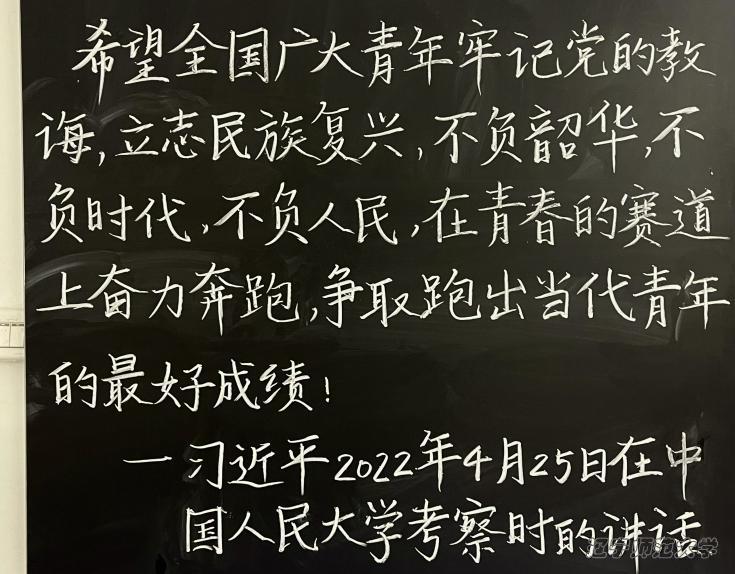 希望全国广大青年牢记党的教
诲,立志民族复兴,不负韶华,不
负时代,不负人民,在青春的赛道
上奋力奔跑,争取跑出当代青年
的最好成绩!
一习近平2022年4月25日在中
国人民大学考察时的讲话
辽宁师范大学